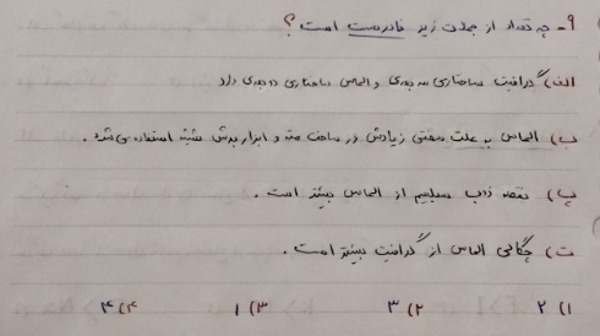 ۹- چه تعداد از جملات زیر نادرست است؟
الف) گرافیت ساختاری سه بعدی و الماس ساختاری دو بعدی دارد
ب) الماس به علت سختی زیادش در ساخت مته و ابزار برش شیشه استفاده می شود.
پ) نقطه ذوب سیلیسیم از الماس بیشتر است.
ت) چگالی الماس از گرافیت بیشتر است.
۱) ۲ ۲) ۳ ۳) ۱ ۴) ۴